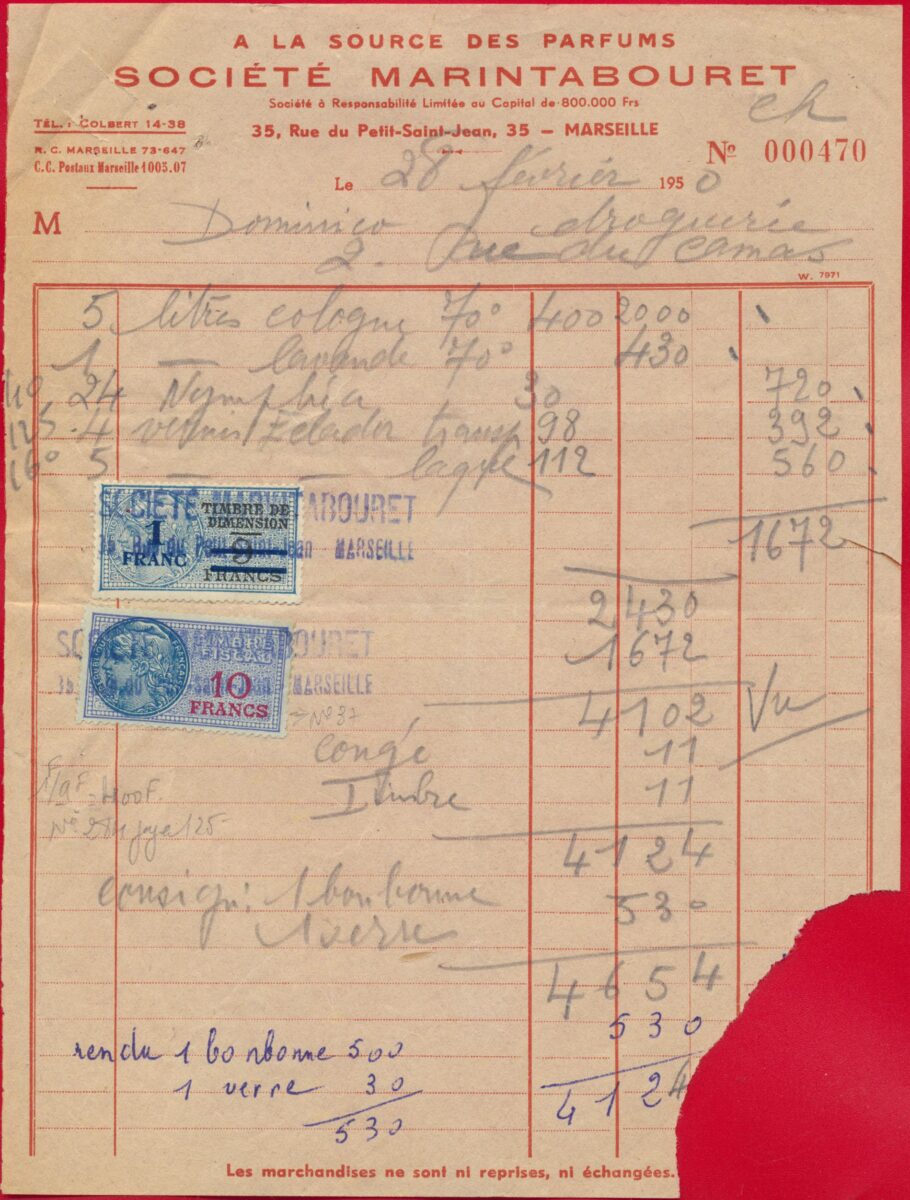 A LA SOURCE DES PARFUMS
SOCIÉTÉ MARINTABOURET
Société à Responsabilité Limitée au Capital de 800.000 Frs
TÉL. : COLBERT 14-38
35, Rue du Petit-Saint-Jean, 35 — MARSEILLE
R. C. MARSEILLE 73-647
C.C. Postaux Marseille 1005.07
Nº 000470
Le 28 février 1950
M Dominico droguerie
2. rue du Camas
W. 7971
5 litres cologne 70° 400 2000
1 — lavande 70° 430
40 24 Nymphéa 30 720
125 4 vernis transp 98 392
160 5 — laque 112 560
SOCIÉTÉ MARINTABOURET
1 FRANC
TIMBRE DE DIMENSION
9 FRANCS
MARSEILLE
1672
2430
1672
SOCIÉTÉ MARINTABOURET
10 FRANCS
MARSEILLE
4102 Vu
→ Nº 37
congé 11
Timbre 11
4124
consign: 1 bonbonne 530
1 verre
4654
530
rendu 1 bonbonne 500
1 verre 30
4124
530
Les marchandises ne sont ni reprises, ni échangées.